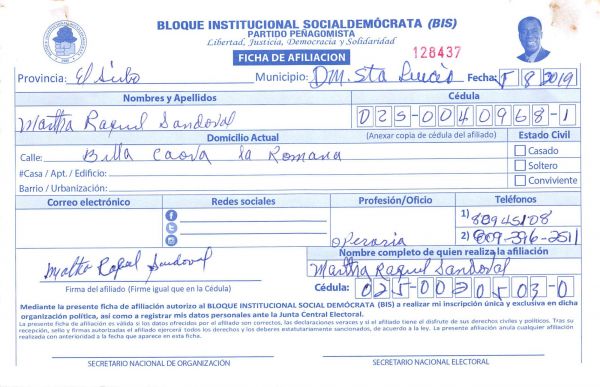 BLOQUE INSTITUCIONAL SOCIALDEMÓCRATA (BIS)
PARTIDO PEÑAGOMISTA
Libertad, Justicia, Democracia y Solidaridad
FICHA DE AFILIACION
128437
Provincia: El Seibo Municipio: DM. Sta Lucia Fecha: 5 8 2019
Nombres y Apellidos Cédula
Martha Raquel Sandoval 025-0040968-1
Domicilio Actual (Anexar copia de cédula del afiliado) Estado Civil
Calle: Billa Caova la Romana
Casado
#Casa / Apt. / Edificio:
Soltero
Barrio / Urbanización:
Conviviente
Correo electrónico Redes sociales Profesión/Oficio Teléfonos
1)
operaria 2) 809-396-2511
Nombre completo de quien realiza la afiliación
Martha Raquel Sandoval Martha Raquel Sandoval
Firma del afiliado (Firme igual que en la Cédula) Cédula: 025-00 0503-0
Mediante la presente ficha de afiliación autorizo al BLOQUE INSTITUCIONAL SOCIAL DEMÓCRATA (BIS) a realizar mi inscripción única y exclusiva en dicha
organización política, así como a registrar mis datos personales ante la Junta Central Electoral.
La presente ficha de afiliación es válida si los datos ofrecidos por el afiliado son correctos, las declaraciones veraces y si el afiliado tiene el disfrute de sus derechos civiles y políticos. Tras su
recepción, sello y firmas autorizadas el afiliado ejercerá todos los derechos y los deberes estatutariamente sancionados, de acuerdo a la ley. La presente afiliación anula cualquier afiliación
realizada con anterioridad a la fecha que aparece en esta ficha.
SECRETARIO NACIONAL DE ORGANIZACIÓN SECRETARIO NACIONAL ELECTORAL